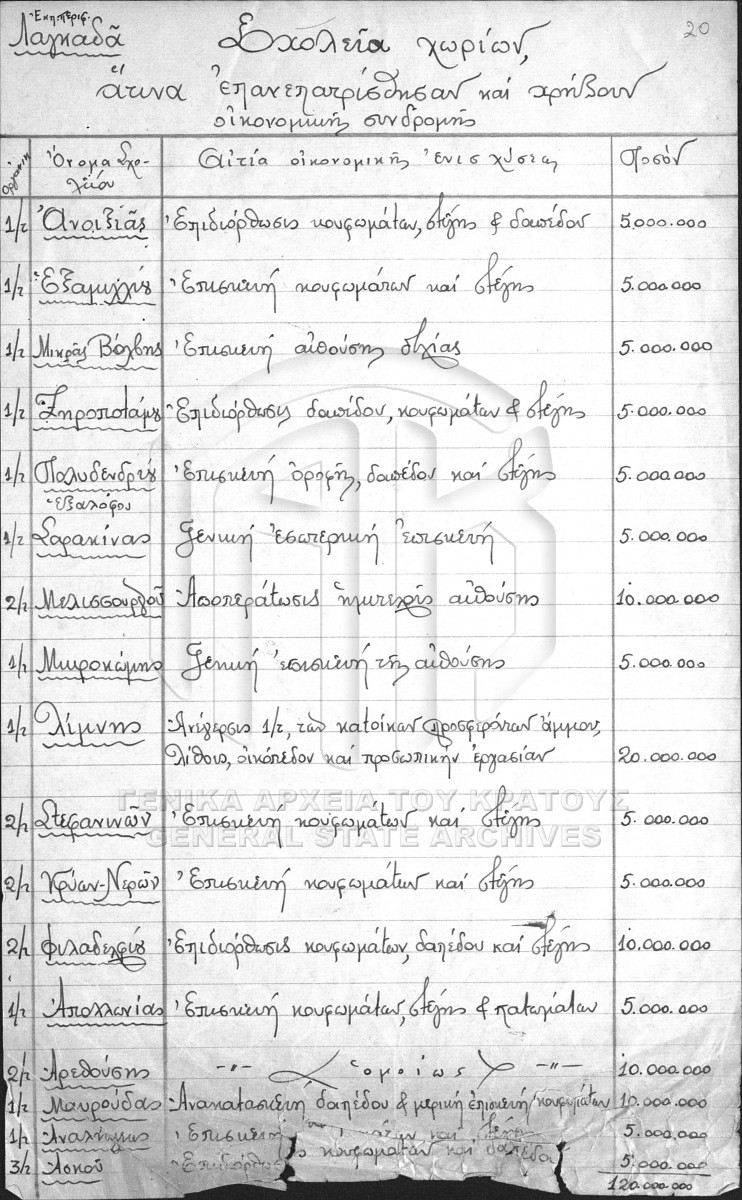 Ἐκπ. περιφ.
Λαγκαδᾶ
20
Σχολεῖα χωρίων,
ἅτινα ἐπανεπατρίσθησαν καί χρήζουν
οἰκονομικῆς συνδρομῆς
Ὄνομα Σχολείου Αἰτία οἰκονομικῆς ἐνισχύσεως Ποσόν
1/τ Ἀνοιξιᾶς Ἐπιδιόρθωσις κουφωμάτων, στέγης & δαπέδου 5.000.000
1/τ Ἑξαμιλίου Ἐπισκευή κουφωμάτων καί στέγης 5.000.000
1/τ Μικρᾶς Βόλβης Ἐπισκευή αἰθούσης διδ/λίας 5.000.000
1/τ Ξηροποτάμου Ἐπιδιόρθωσις δαπέδου, κουφωμάτων & στέγης 5.000.000
1/τ Πολυδενδρίου Ἐπισκευή ὀροφῆς, δαπέδου καί στέγης 5.000.000
Ἑξαλόφου
1/τ Σαρακίνας Γενική ἐσωτερική ἐπισκευή 5.000.000
2/τ Μελισσουργοῦ Ἀποπεράτωσις ἡμιτελοῦς αἰθούσης 10.000.000
1/τ Μικροκώμης Γενική ἐπισκευή τῆς αἰθούσης 5.000.000
1/τ Λίμνης Ἀνέγερσις 1/τ, τῶν κατοίκων προσφερόντων ἄμμον,
λίθους, οἰκόπεδον καί προσωπικήν ἐργασίαν 20.000.000
ΓΕΝΙΚΑ ΑΡΧΕΙΑ ΤΟΥ ΚΡΑΤΟΥΣ
2/τ Στεφανινῶν Ἐπισκευή κουφωμάτων καί στέγης 5.000.000
GENERAL STATE ARCHIVES
2/τ Κρύων-Νερῶν Ἐπισκευή κουφωμάτων καί στέγης 5.000.000
2/τ Φιλαδελφίου Ἐπιδιόρθωσις κουφωμάτων, δαπέδου καί στέγης 10.000.000
1/τ Ἀπολλωνίας Ἐπισκευή κουφωμάτων, στέγης & πατωμάτων 5.000.000
2/τ Ἀρεθούσης -"- ὁμοίως -"- 10.000.000
1/τ Μαυρούδας Ἀνακατασκευή δαπέδου & μερική ἐπισκευή κουφωμάτων 10.000.000
1/τ Ἐπισκευή καί 5.000.000
3/τ Ἀσκοῦ κουφωμάτων καί δαπέδου 5.000.000
120.000.000